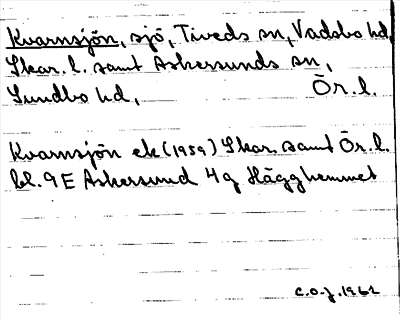 Kvarnsjön, sjö, Tiveds sn, Vadsbo hd,
Skar. l. samt Askersunds sn,
Sundbo hd, Ör. l.
Kvarnsjön ek (1959) Skar. samt Ör. l.
bl. 9E Askersund 4g Hägghemmet
C.O.J. 1962